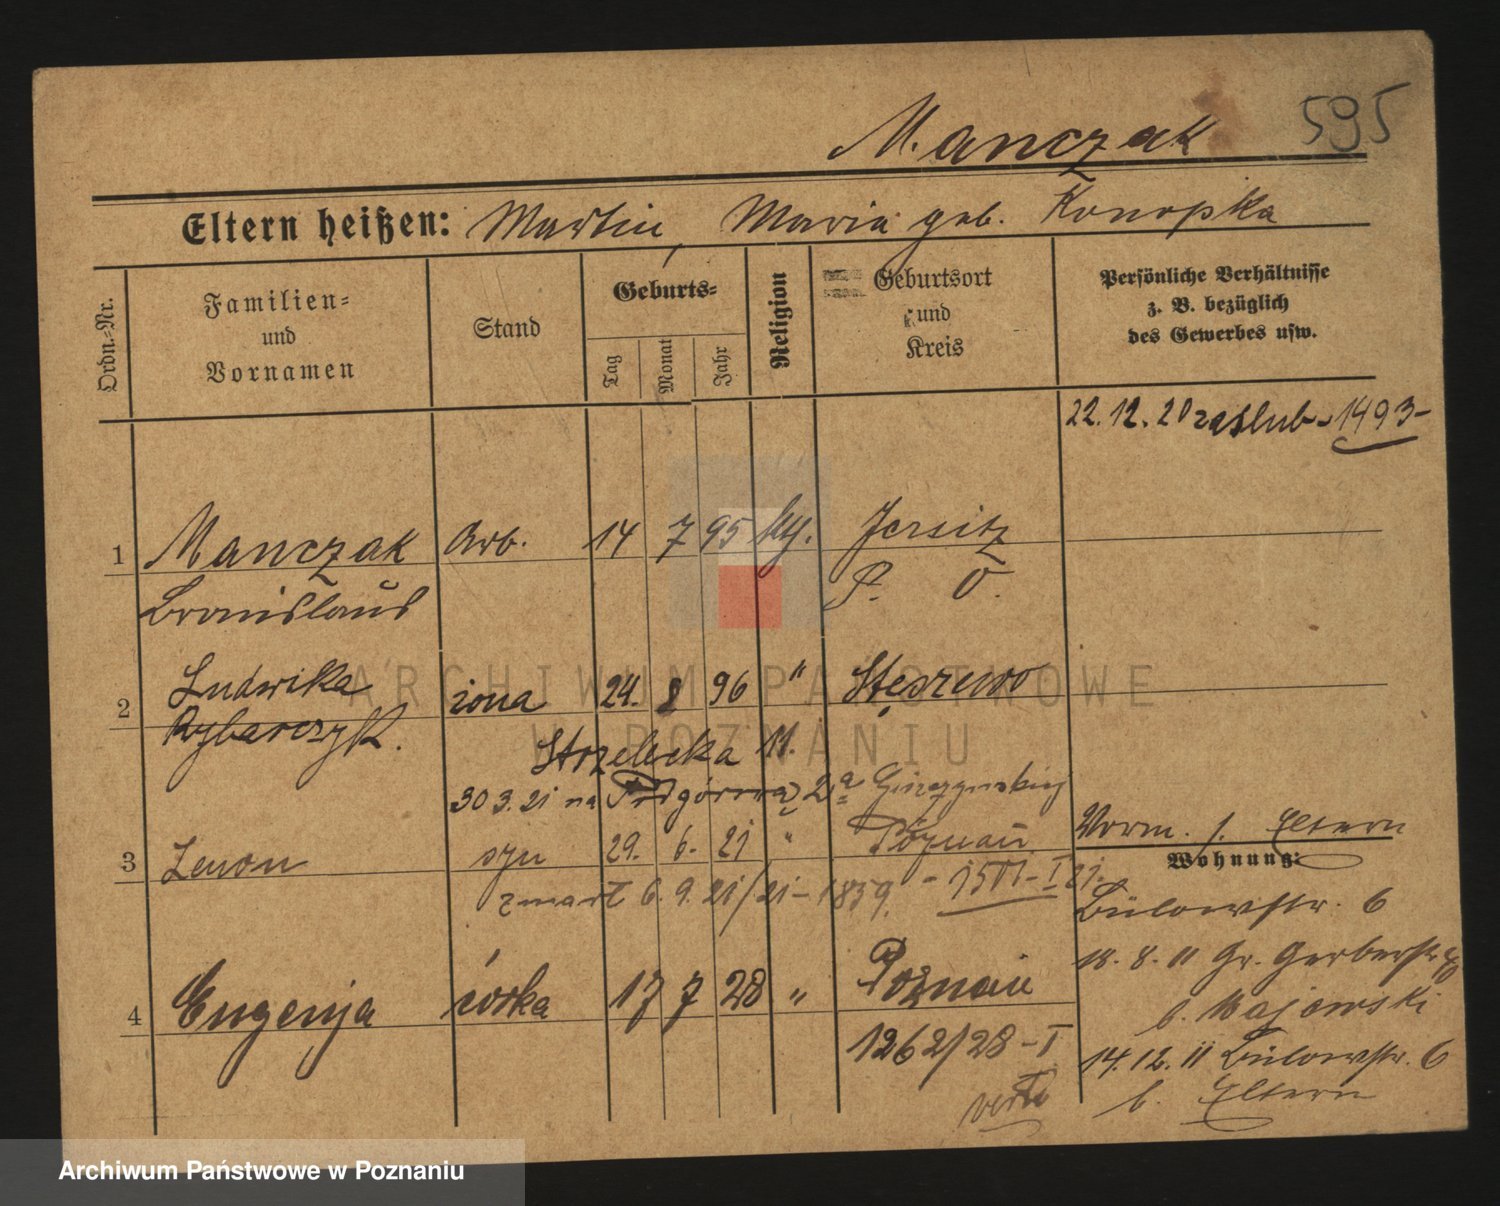 Manczak 595
Eltern heißen: Martin, Maria geb. Konopka
Ordn.-Nr.
Familien- und Vornamen
Stand
Geburts-
Tag
Monat
Jahr
Religion
Geburtsort und Kreis
Persönliche Verhältnisse
z. B. bezüglich
des Gewerbes usw.
22.12.20 zaślub - 1493-
1 Manczak Arb. 14 7 95 Jersitz
Bronislaus P. O.
2 Ludwika żona 24. 8 96 " Stęszewo
Rybarczyk.
Strzelecka 11.
30 3. 21 na Podgórną 2a
3 Zenon syn 29. 6. 21 " Poznań
zmarł 6. 9. 21/21 - 1839.
Vorm. s. Eltern
Wohnung:
Bülowstr. 6
18. 8. 11 Gr. Gerberstr
b. Majewski
14. 12. 11 Bülowstr. 6
b. Eltern
4 Eugenja córka 17 7 28 " Poznań
1262/28 - I
verte
ARCHIWUM PAŃSTWOWE
W POZNANIU
Archiwum Państwowe w Poznaniu